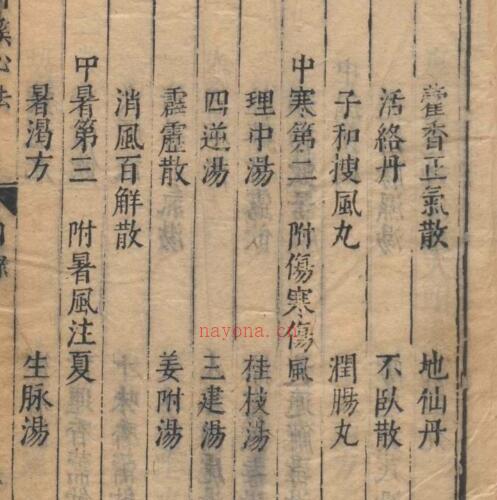 藿香正氣散　地仙丹
活絡丹　不臥散
子和搜風丸　潤腸丸
中寒第二　附傷寒傷風
理中湯　桂枝湯
四逆湯　三建湯
霹靂散　姜附湯
消風百解散
中暑第三　附暑風注夏
暑渴方　生脉湯
心法
目錄
nayona.cn